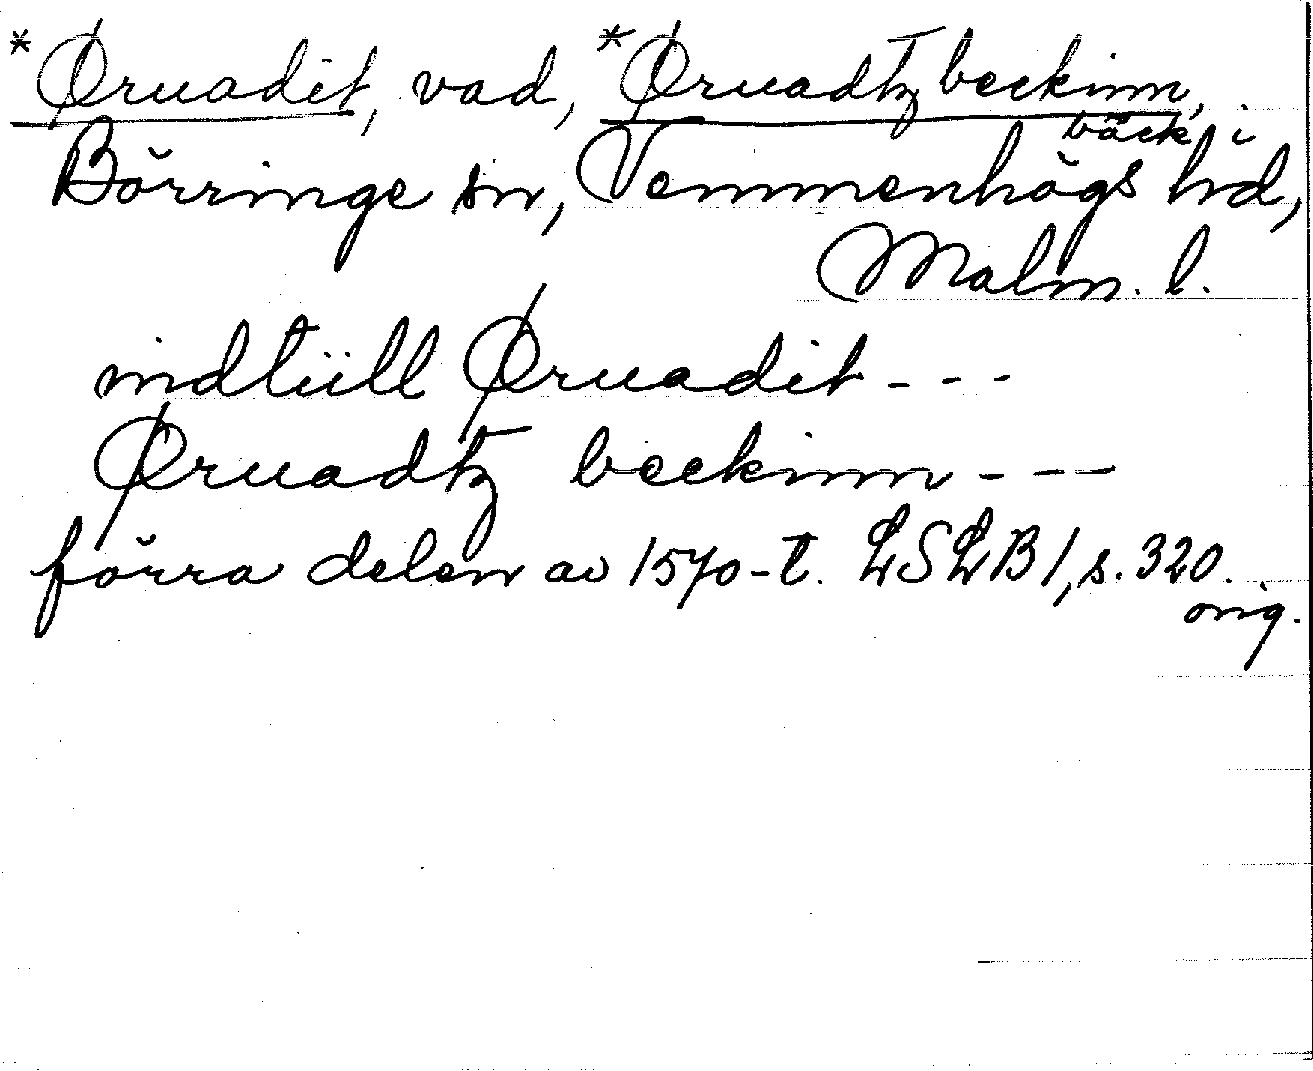 *Øruadit, vad, *Øruadtz beckinn,
bäck
Börringe sn, Vemmenhögs hd,
Malm. l.
indtiill Øruadit - - -
Øruadtz beckinn - - -
förra delen av 1570-t. LSLB 1, s. 320.
orig.